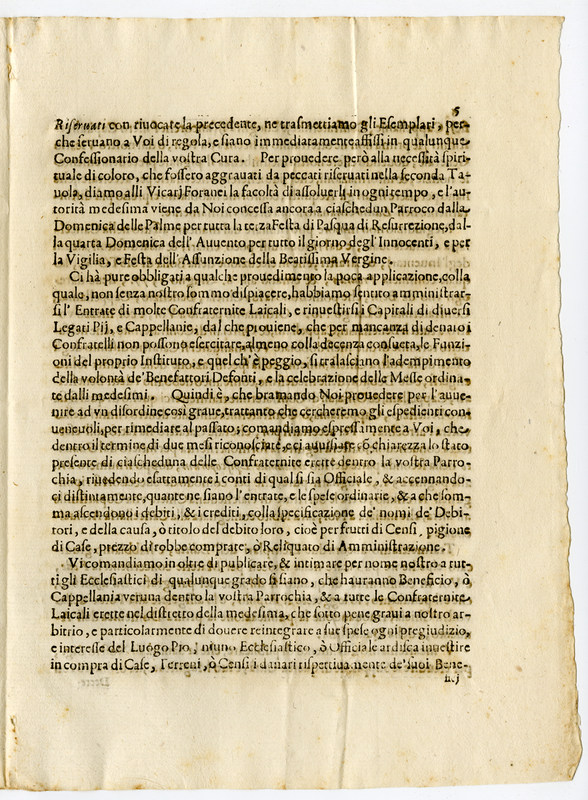 5
Riseruati con riuocare la precedente, ne trasmettiamo gli Esemplari, per-
che seruano a Voi di regola, e siano immediatamente affissi in qualunque
Confessionario della vostra Cura. Per prouedere però alla necessità spiri-
tuale di coloro, che fossero aggrauati da peccati riseruati nella seconda Ta-
uola, diamo alli Vicarj Foranei la facoltà di assoluerli in ogni tempo, e l'au-
torità medesima viene da Noi concessa ancora a ciaschedun Parroco dalla
Domenica delle Palme per tutta la terza Festa di Pasqua di Resurrezione, dal-
la quarta Domenica dell' Auuento per tutto il giorno degl' Innocenti, e per
la Vigilia, e Festa dell' Assunzione della Beatissima Vergine.
Ci hà pure obbligati a qualche prouedimento la poca applicazione, colla
quale, non senza nostro sommo dispiacere, habbiamo sentito amministrar-
si l' Entrate di molte Confraternite Laicali, e rinuestirsi i Capitali di diuersi
Legati Pij, e Cappellanie, dal che prouiene, che per mancanza di denaro i
Confratelli non possono esercitare, almeno colla decenza consueta, le Funzi-
oni del proprio Instituto, e quel ch' è peggio, si tralasciano l' adempimento
della volontà de' Benefattori Defonti, e la celebrazione delle Messe ordina-
te dalli medesimi. Quindi è, che bramando Noi prouedere per l' auue-
nire ad vn disordine così graue, trattanto che cercheremo gli espedienti con-
ueneuoli, per rimediare al passato; comandiamo espressamente a Voi, che
dentro il termine di due mesi riconosciate, e ci auuisiate cõ chiarezza lo stato
presente di ciascheduna delle Confraternite erette dentro la vostra Parro-
chia, riuedendo esattamente i conti di qual si sia Officiale, & accennando-
ci distintamente, quante ne siano l' entrate, e le spese ordinarie, & a che som-
ma ascendono i debiti, & i crediti, colla specificazione de' nomi de' Debi-
tori, e della causa, ò titolo del debito loro, cioè per frutti di Censi, pigione
di Case, prezzo di robbe comprate, ò Reliquato di Amministrazione.
Vi comandiamo in oltre di publicare, & intimare per nome nostro a tut-
ti gli Ecclesiastici di qualunque grado si siano, che hauranno Beneficio, ò
Cappellania veruna dentro la vostra Parrochia, & a tutte le Confraternite
Laicali erette nel distretto della medesima, che sotto pene graui a nostro ar-
bitrio, e particolarmente di douere reintegrare a sue spese ogni pregiudizio,
e interesse del Luogo Pio, niuno Ecclesiastico, ò Officiale ardisca inuestire
in compra di Case, Terreni, ò Censi i danari rispettiuamente de' suoi Bene-
ficj